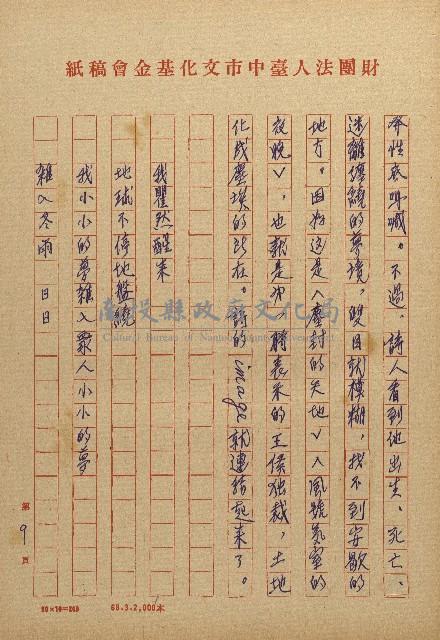 財團法人臺中市文化基金會稿紙
奔性底呼喊。不過，詩人看到他出生、死亡、
迷離纏繞的夢境，雙目就模糊，找不到安歇的
地方。因為這是∧塵封的天地∨∧風號氣窒的
夜晚∨，也就是
的王侯独裁，土地
化成塵埃的所在。詩的image就連結起來了。
我瞿然醒来
地球不停地
我小小的夢雜入眾人小小的夢
雜入冬雨 日日
第9頁
68.3.2,000本
南投縣政府文化局
Cultural Bureau of Nantou County Government